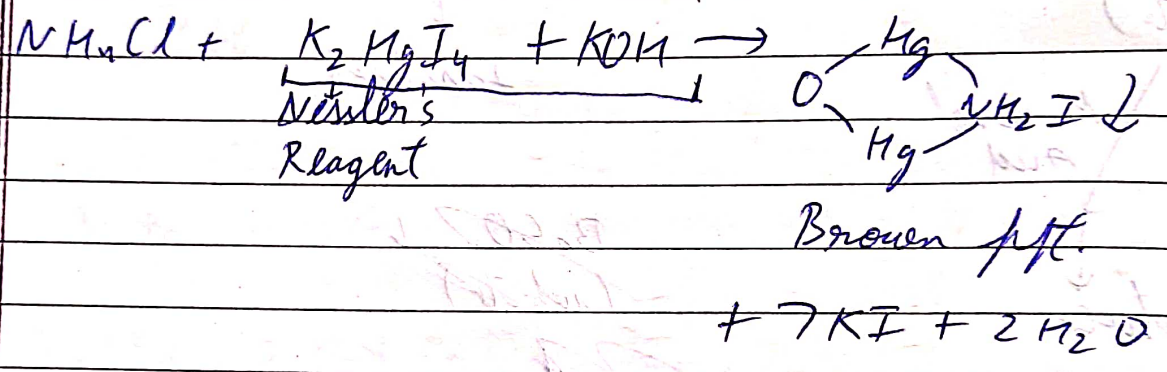 NH4Cl + K2HgI4 + KOH → O Hg Hg NH2I ↓
Nessler's
Reagent
Brown ppt.
+ 7KI + 2H2O